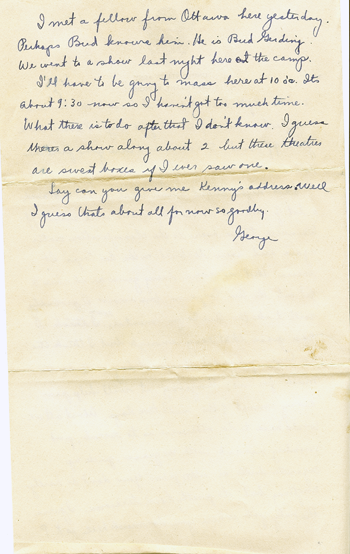 I met a fellow from Ottawa here yesterday.
Perhaps Bud knows him. He is Bud
We went to a show last night here at the camp.
I'll have to be going to mass here at 10:30. Its
about 9:30 now so I haven't got too much time.
What there is to do after that I don't know. I guess
theres a show along about 2 but these theatres
are sweat boxes if I ever saw one.
Say can you give me Kenny's address. Well
I guess thats about all for now so goodby.
George